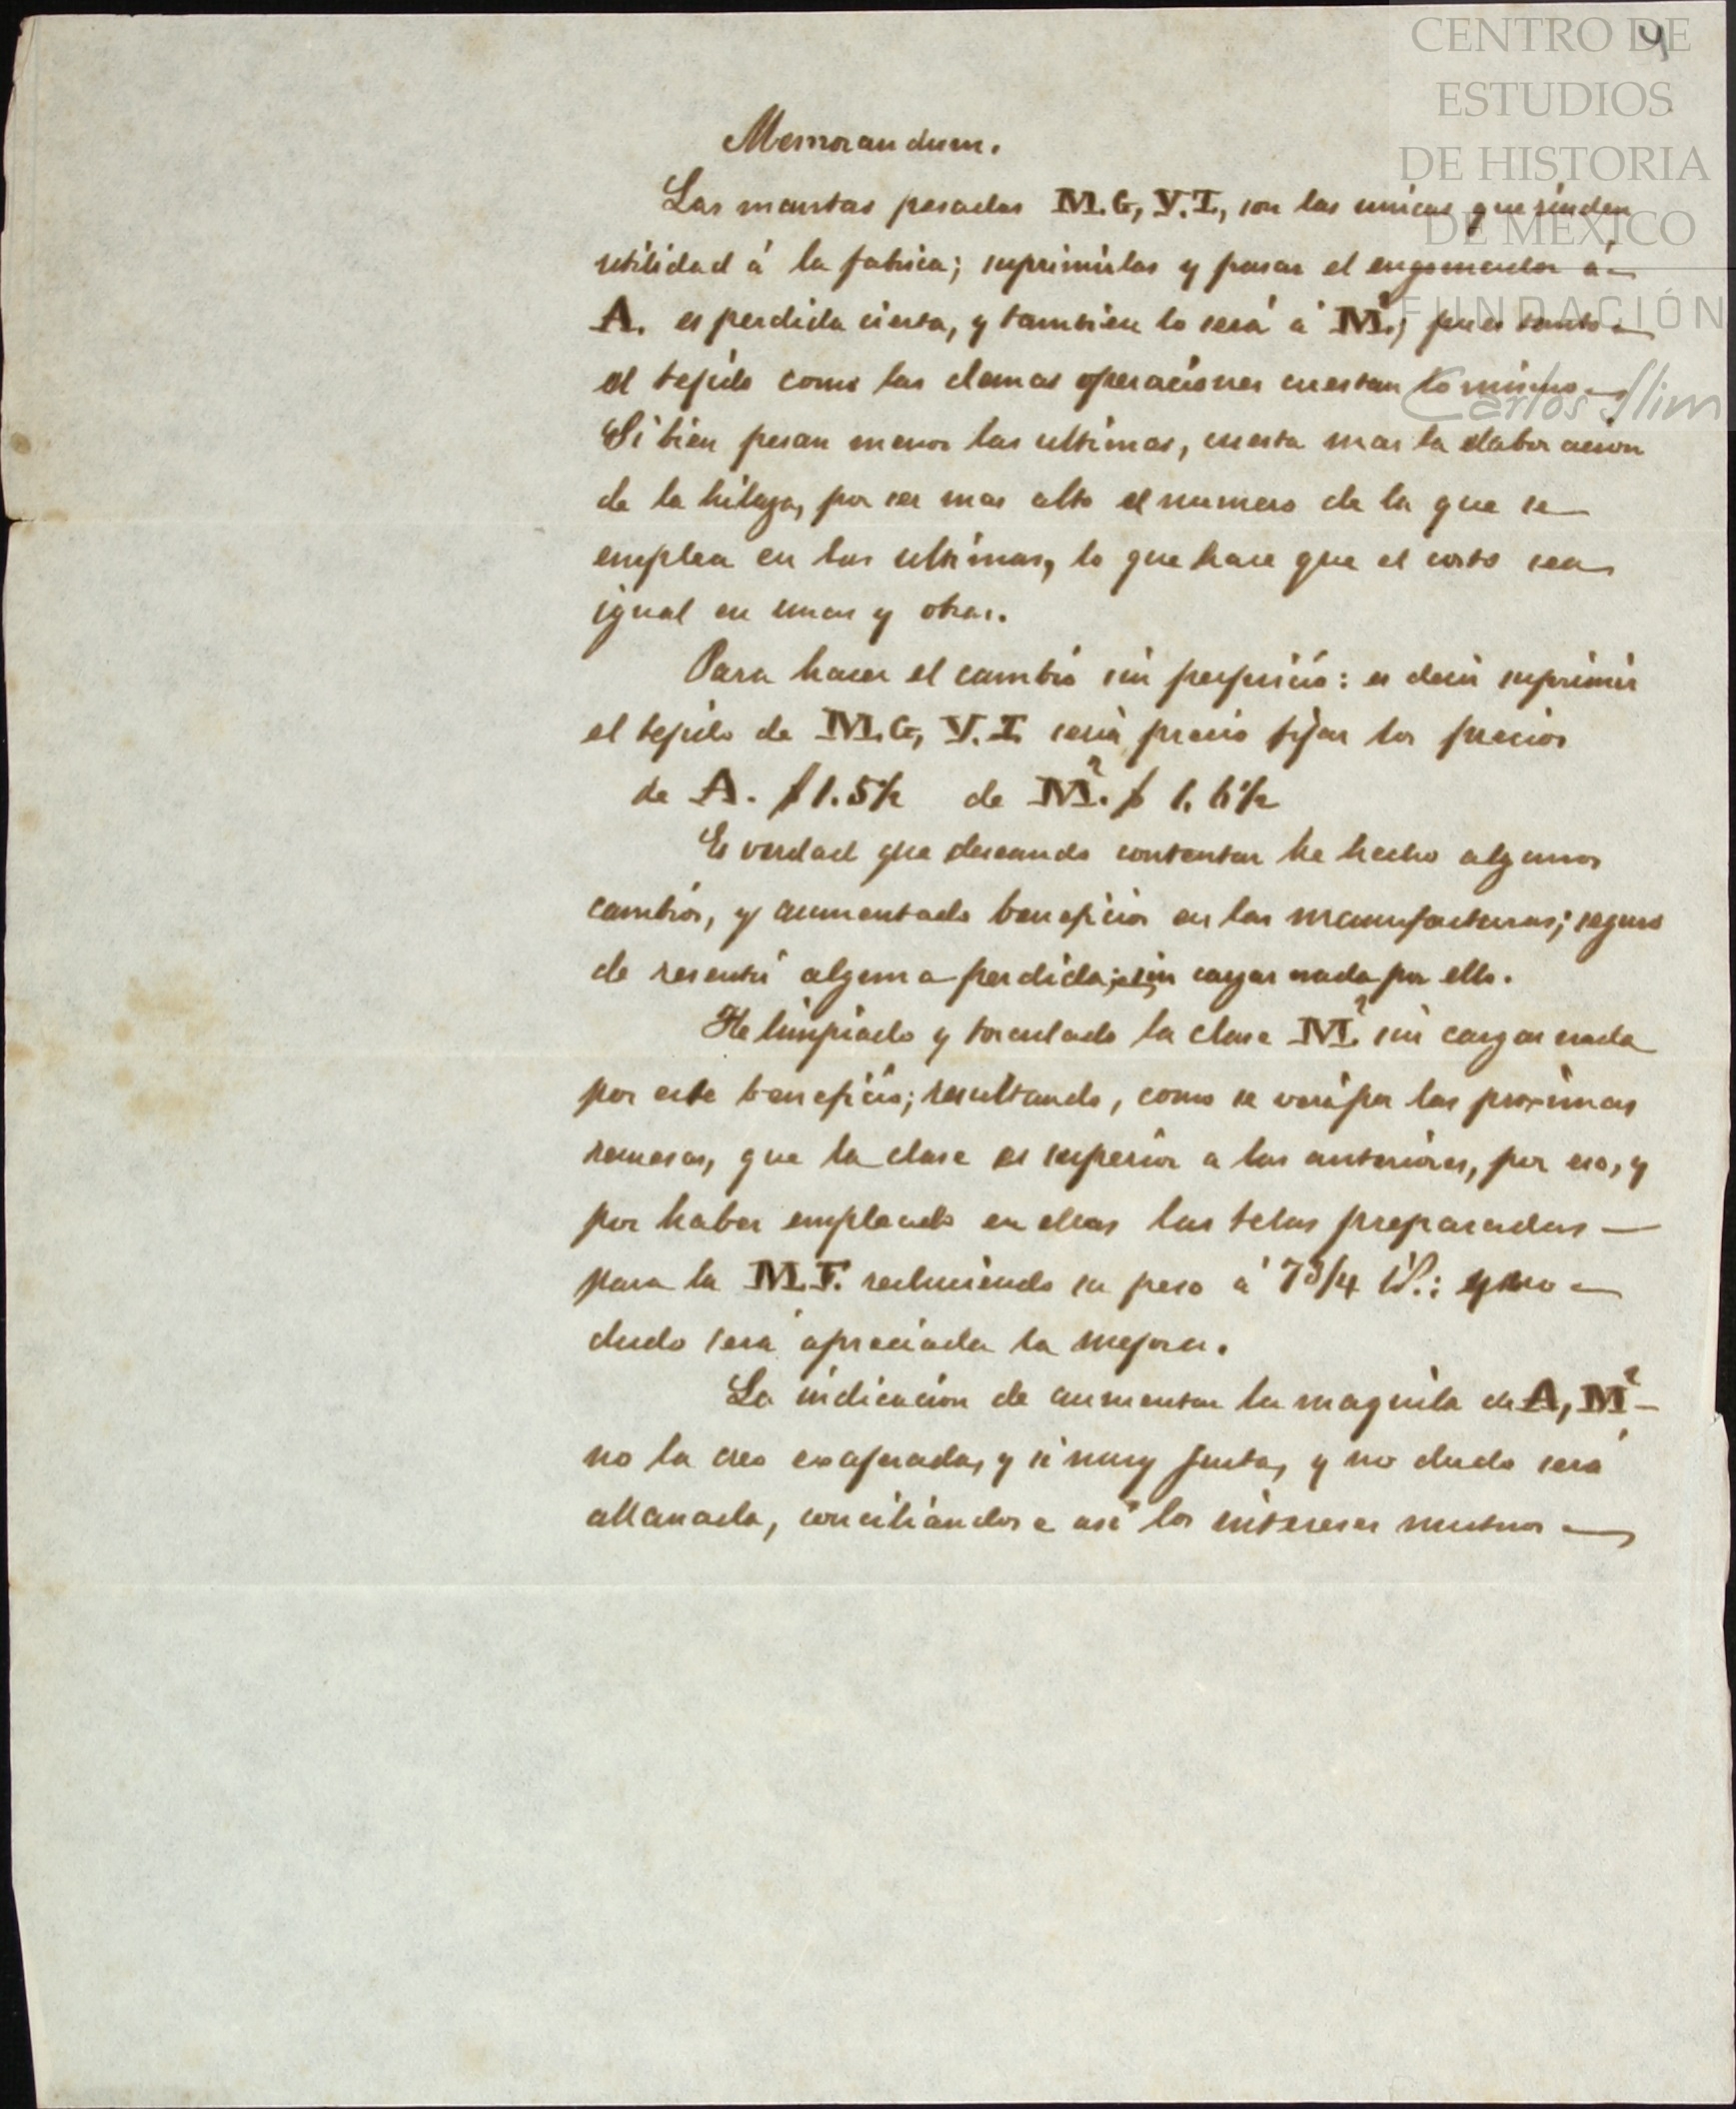 CENTRO DE
ESTUDIOS
DE HISTORIA
DE MÉXICO
FUNDACIÓN
Carlos Slim
4
Memorandum.
Las mantas pesadas M.G, V.I, son las unicas que rinden
utilidad á la fabrica; suprimirlas y pasar el engomador á
A. es perdida cierta, y tambien lo será á M²; pues tanto
el tejido como las demas operaciones cuestan lo mismo
Si bien pesan menos las ultimas, cuesta mas la elaboracion
de la hilaza, por ser mas alto el numero de la que se
emplea en las ultimas, lo que hace que el costo sea
igual en unas y otras.
Para hacer el cambio sin perjuicio: es decir suprimir
el tejido de M.G, V.I. seria preciso fijar los precios
de A. $1.5½ de M². $ 1.6½
Es verdad que deseando contentar he hecho algunos
cambios, y aumentado beneficios en las manufacturas; seguro
de resentir alguna perdida; sin cargar nada por ello.
He limpiado y torculado la clase M² sin cargar nada
por este beneficio; resultando, como se verá por las proximas
remesas, que la clase es superior a las anteriores, por eso, y
por haber empleado en ellas las telas preparadas
para la M.F. reduciendo su peso á 7 3/4 lb.: y no
dudo será apreciada la mejora.
La indicacion de aumentar la maquila de A, M²
no la creo exajerada, y si muy justa, y no dudo será
allanada, conciliandose asi los intereses mutuos